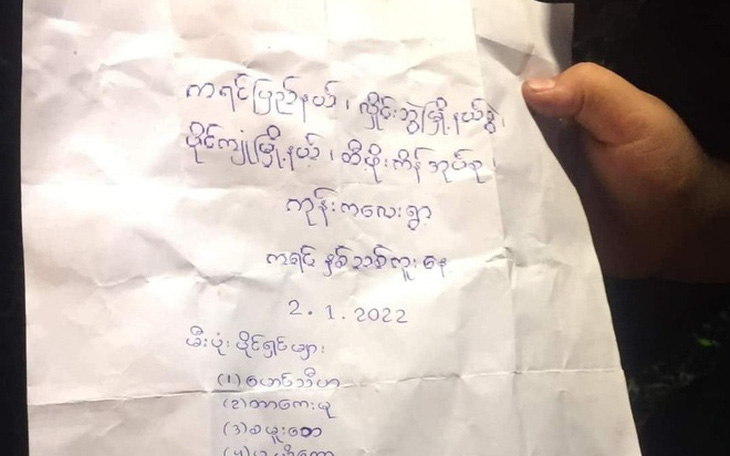 ကရင်ပြည်နယ်၊ လှိုင်းဘွဲမြို့နယ်ခွဲ၊
ပိုင်ကျုံမြို့နယ်၊ တီဖိုးကိန်အုပ်စု၊
ကုန်းကလေးရွာ
ကရင်နှစ်သစ်ကူးနေ့
2.1.2022
မီးပုံးပိုင်ရှင်များ
(၁) မောင်သီဟ
(၂)
(၃)
(၄)